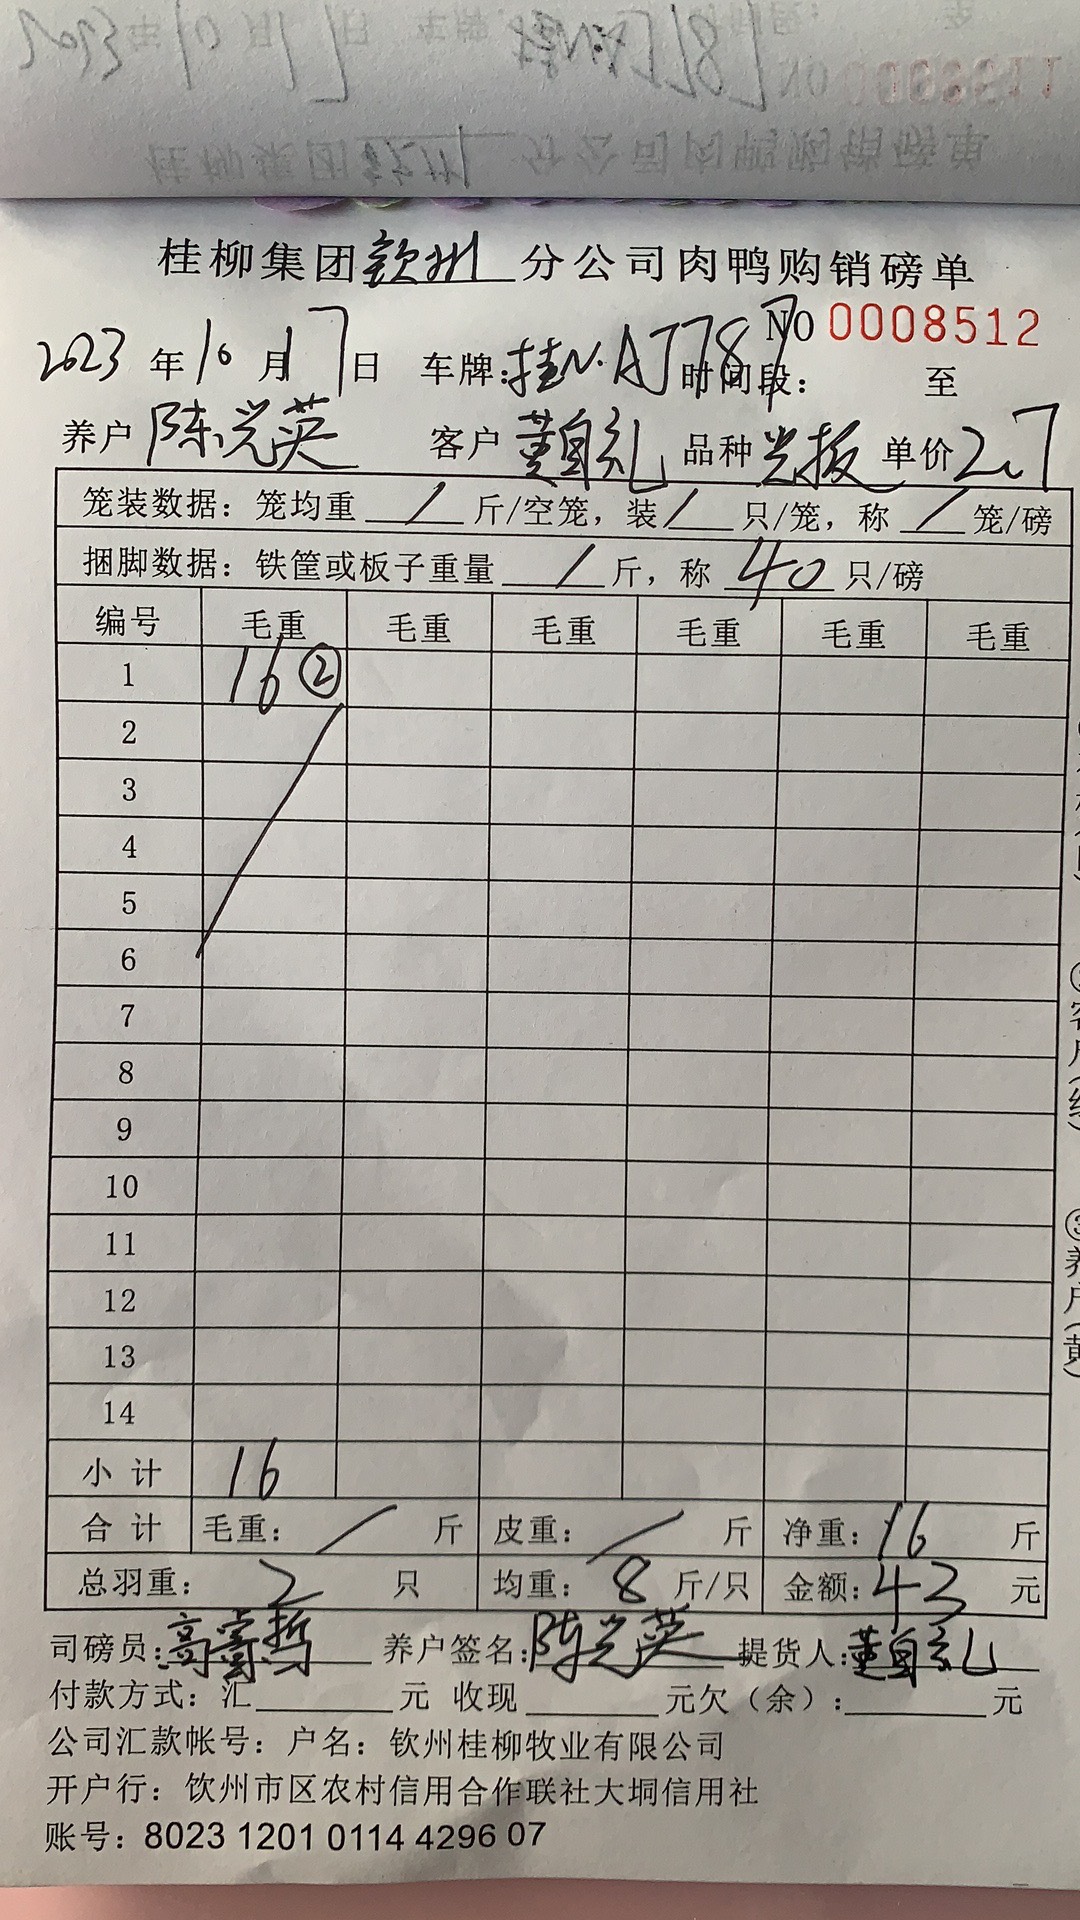 桂柳集团钦州分公司肉鸭购销磅单
NO 0008512
2023年10月17日 车牌:桂N·AJ787 时间段: 至
养户 陈兴英 客户 董自礼 品种 光板 单价 2.7
笼装数据: 笼均重 / 斤/空笼, 装 / 只/笼, 称 / 笼/磅
捆脚数据: 铁筐或板子重量 / 斤, 称 40 只/磅
编号 毛重 毛重 毛重 毛重 毛重 毛重
1 16 ②
2
3
4
5
6
7
8
9
10
11
12
13
14
小计 16
合计 毛重: / 斤 皮重: / 斤 净重: 16 斤
总羽重: 2 只 均重: 8 斤/只 金额: 43 元
司磅员: 养户签名: 陈兴英 提货人: 董自礼
付款方式: 汇 元 收现 元欠(余): 元
公司汇款帐号: 户名: 钦州桂柳牧业有限公司
开户行: 钦州市区农村信用合作联社大垌信用社
账号: 8023 1201 0114 4296 07
客户(红)
③养户(黄)